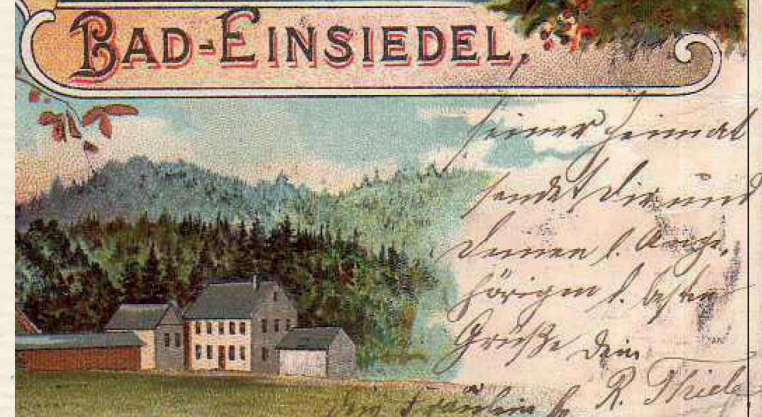 BAD-EINSIEDEL,
seiner Heimat
sendet Dir und
Deinen l. Ange-
hörigen d. besten
Grüße Dein
R. Thiele